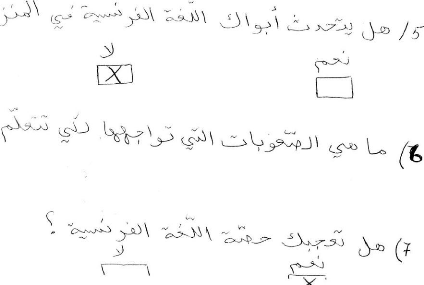 5/ هل يتحدث أبواك اللّغة الفرنسية في المنز
نعم لا
X
6) ما هي الصّعوبات التي تواجهها لكي تتعلّم
7) هل تعجبك حصّة اللّغة الفرنسية ؟
نعم لا
X